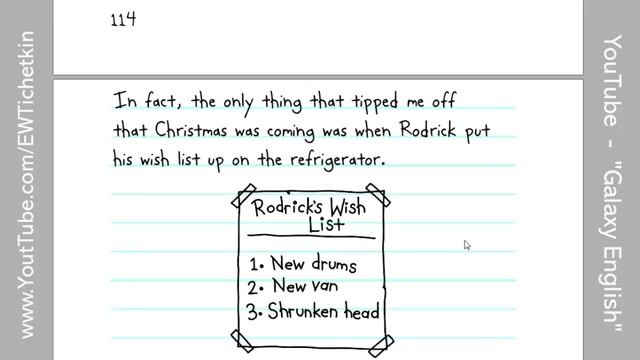 114
In fact, the only thing that tipped me off
that Christmas was coming was when Rodrick put
his wish list up on the refrigerator.
Rodrick's Wish
List
1. New drums
2. New van
3. Shrunken head
www.YoutTube.com/EWTichetkin
YouTube - "Galaxy English"